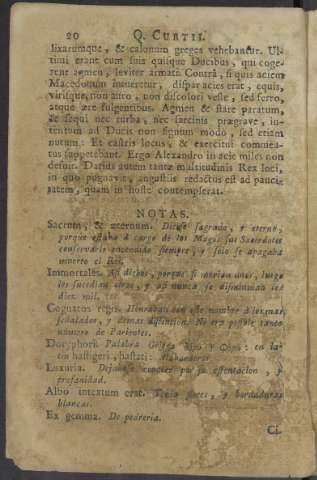 20 Q. CURTII.
lixarumque, & calonum greges vehebantur. Ul-
timi erant cum suis quisque Ducibus, qui coge-
rent agmen, leviter armati. Contrà, si quis aciem
Macedonum intueretur, dispar acies erat, equis,
virisque, non auro, non discolori veste, sed ferro,
atque ære fulgentibus. Agmen & stare paratum,
& sequi nec turba, nec sarcinis prægrave, in-
tentum ad Ducis non signum modò, sed etiam
nutum: Et castris locus, & exercitui commea-
tus suppetebant. Ergo Alexandro in acie miles non
defuit. Darius autem tantæ multitudinis Rex loci,
in quo pugnavit, angustiis redactus est ad pauci-
tatem, quam in hoste contempserat.
NOTAS.
Sacrum, & æternum. Dicese sagrado, y eterno,
porque estaba à cargo de los Magos sus Sacerdotes
conservarle encendido siempre, y solo se apagaba
muerto el Rei.
Immortales. Asi dichos, porque si morian unos, luego
les sucedian otros, y asi nunca se disminuian los
diez mil.
Cognatos regis. Honraban con este nombre
señalados, y de mas distincion. No era posible tanto
numero de Parientes.
Doryphori. Palabra Griega en la-
tin hastigeri, hastati: Alabarderos.
Luxuria. Dejabase conocer por su ostentacion, y
profanidad.
Albo intextum erat. Tenia flores, y bordaduras
blancas.
Ex gemma. De pedreria.
Ci-